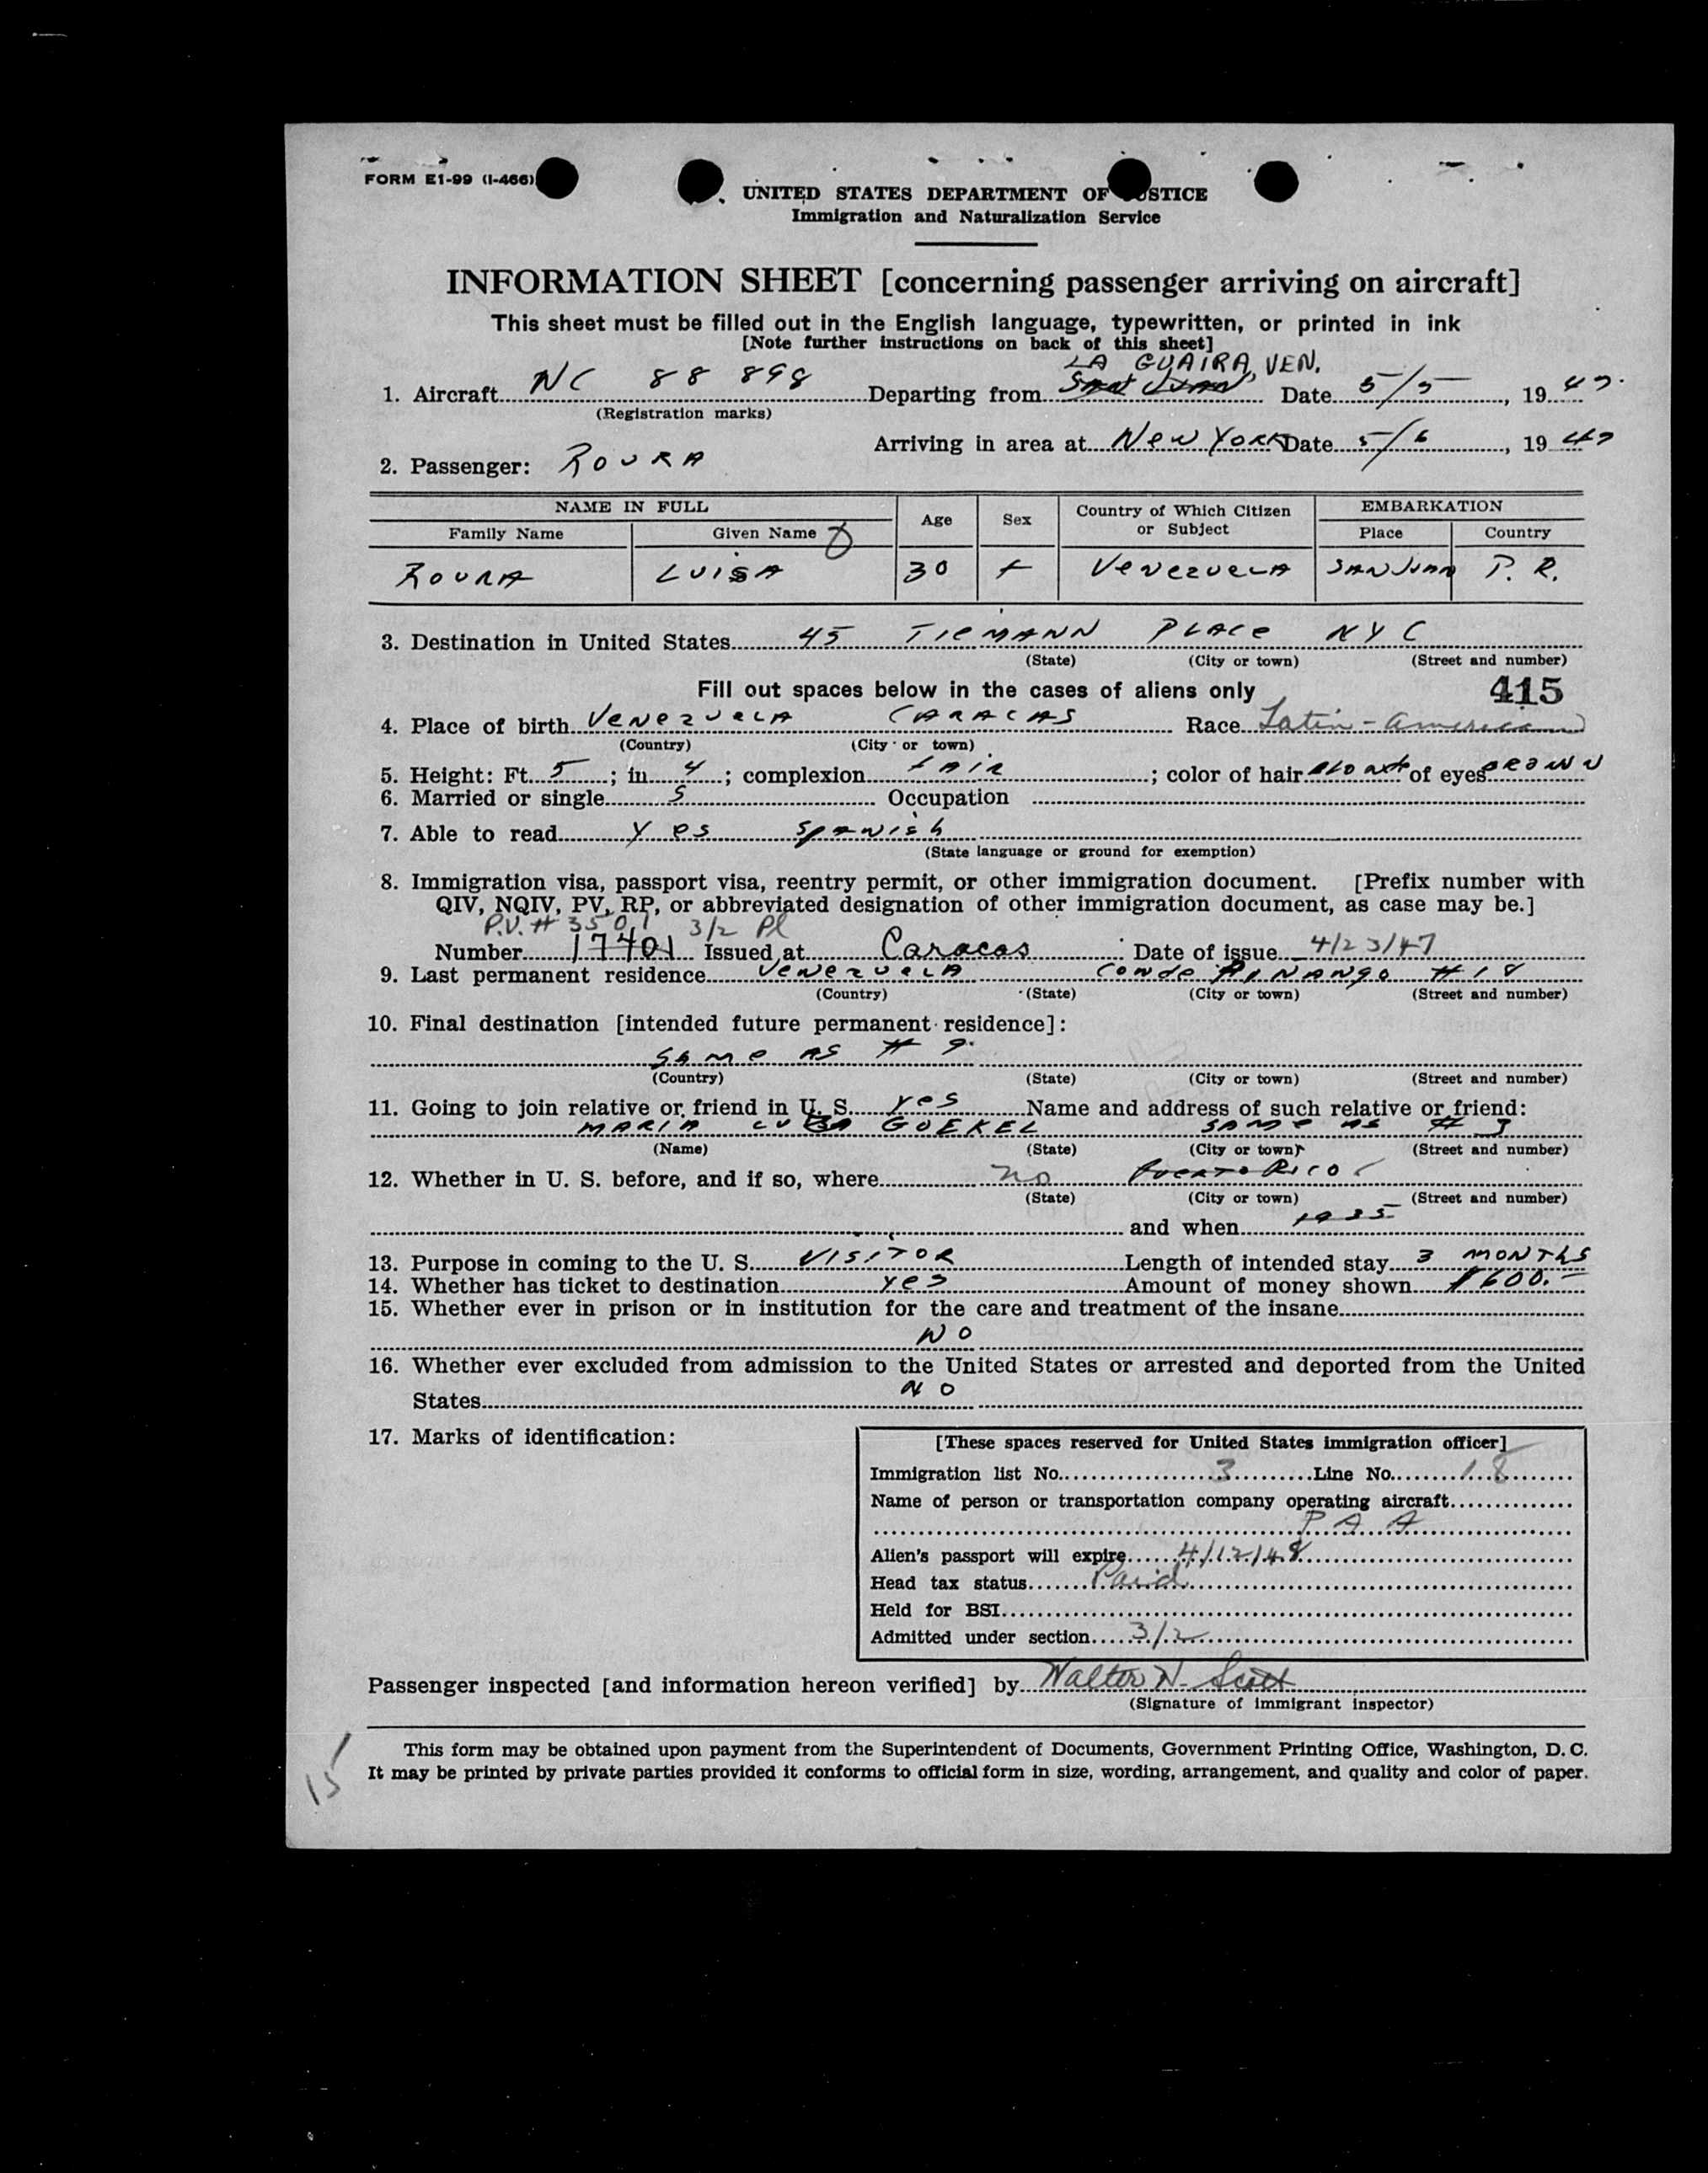 FORM E1-99 (I-466)
UNITED STATES DEPARTMENT OF JUSTICE
Immigration and Naturalization Service
INFORMATION SHEET [concerning passenger arriving on aircraft]
This sheet must be filled out in the English language, typewritten, or printed in ink
[Note further instructions on back of this sheet]
LA GUAIRA, VEN.
1. Aircraft NC 88 898 Departing from SAN JUAN Date 5/5, 1947.
(Registration marks)
Arriving in area at New York Date 5/6, 1947
2. Passenger: ROURA
NAME IN FULL Age Sex Country of Which Citizen or Subject EMBARKATION
Family Name Given Name Place Country
ROURA LUISA 30 f VENEZUELA SAN JUAN P. R.
3. Destination in United States 45 TIEMANN PLACE NYC
(State) (City or town) (Street and number)
Fill out spaces below in the cases of aliens only 415
4. Place of birth VENEZUELA CARACAS Race Latin-American
(Country) (City or town)
5. Height: Ft. 5; in 4; complexion fAIR; color of hair of eyes BROWN
6. Married or single S Occupation
7. Able to read Yes Spanish
(State language or ground for exemption)
8. Immigration visa, passport visa, reentry permit, or other immigration document. [Prefix number with
QIV, NQIV, PV, RP, or abbreviated designation of other immigration document, as case may be.]
P.V. # 3501 3/2 Pl
Number 17401 Issued at Caracas Date of issue 4/23/47
9. Last permanent residence VENEZUELA Conde A PINANGO # 18
(Country) (State) (City or town) (Street and number)
10. Final destination [intended future permanent residence]:
SAME AS # 9.
(Country) (State) (City or town) (Street and number)
11. Going to join relative or friend in U. S. Yes Name and address of such relative or friend:
MARIA LUISA GOEKEL SAME AS # 3
(Name) (State) (City or town) (Street and number)
12. Whether in U. S. before, and if so, where no PUERTO RICO
(State) (City or town) (Street and number)
and when 1935
13. Purpose in coming to the U. S. VISITOR Length of intended stay 3 MONTHS
14. Whether has ticket to destination Yes Amount of money shown $600.-
15. Whether ever in prison or in institution for the care and treatment of the insane
NO
16. Whether ever excluded from admission to the United States or arrested and deported from the United
States NO
17. Marks of identification:
[These spaces reserved for United States immigration officer]
Immigration list No. 3 Line No. 18
Name of person or transportation company operating aircraft
P A A
Alien's passport will expire 4/12/48
Head tax status Paid
Held for BSI
Admitted under section 3/2
Passenger inspected [and information hereon verified] by Walter N. Scott
(Signature of immigrant inspector)
This form may be obtained upon payment from the Superintendent of Documents, Government Printing Office, Washington, D. C.
It may be printed by private parties provided it conforms to official form in size, wording, arrangement, and quality and color of paper.
15